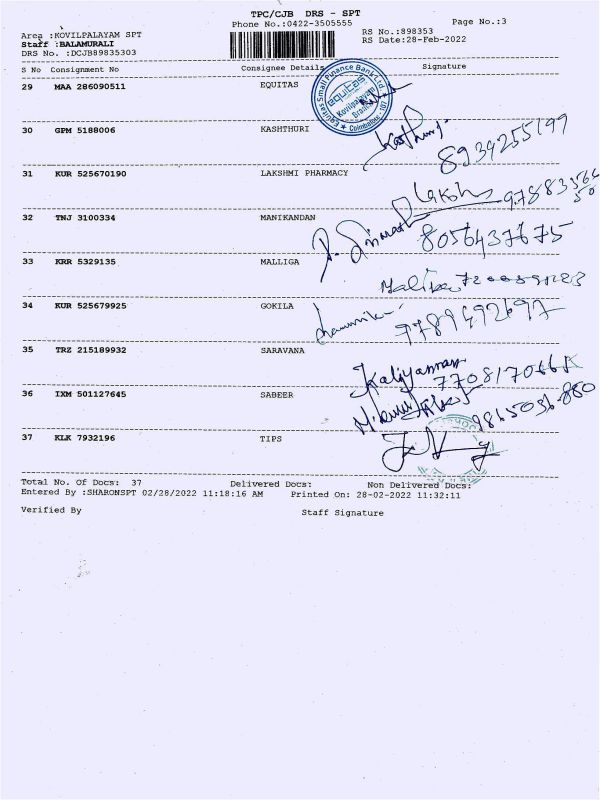 TPC/CJB DRS - SPT
Phone No.:0422-3505555 Page No.:3
Area :KOVILPALAYAM SPT RS No.:898353
Staff :BALAMURALI RS Date:28-Feb-2022
DRS No. :DCJB89835303
S No Consignment No Consignee Details Signature
29 MAA 286090511 EQUITAS
Equitas Small Finance Bank Ltd.
equitas
Kovilpalayam
Branch
Coimbatore
30 GPM 5188006 KASHTHURI
8939255199
31 KUR 525670190 LAKSHMI PHARMACY
Lakshmi
32 TNJ 3100334 MANIKANDAN
8056437675
33 KRR 5329135 MALLIGA
34 KUR 525679925 GOKILA
9789492697
35 TRZ 215189932 SARAVANA
Kaliyamman
36 IXM 501127645 SABEER
37 KLK 7932196 TIPS
Total No. Of Docs: 37 Delivered Docs: Non Delivered Docs:
Entered By :SHARONSPT 02/28/2022 11:18:16 AM Printed On: 28-02-2022 11:32:11
Verified By Staff Signature